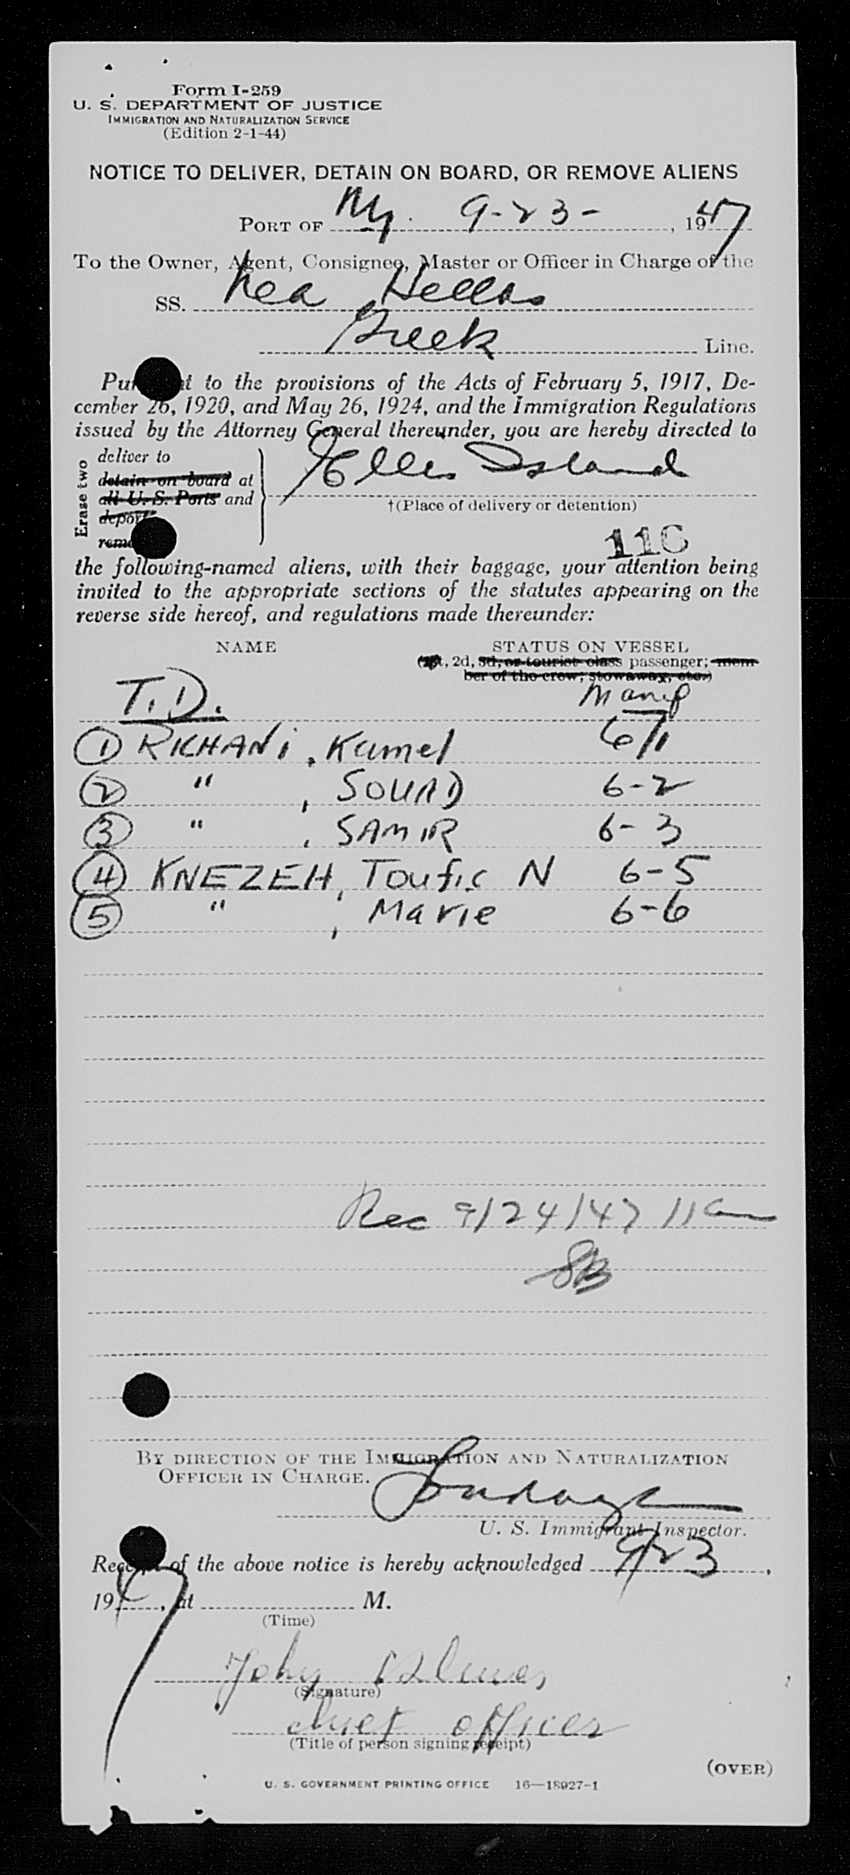 Form I-259
U. S. DEPARTMENT OF JUSTICE
IMMIGRATION AND NATURALIZATION SERVICE
(Edition 2-1-44)
NOTICE TO DELIVER, DETAIN ON BOARD, OR REMOVE ALIENS
PORT OF NY. 9-23-, 1947
To the Owner, Agent, Consignee, Master or Officer in Charge of the
SS. Nea Hellas
Greek Line.
Pursuant to the provisions of the Acts of February 5, 1917, De-
cember 26, 1920, and May 26, 1924, and the Immigration Regulations
issued by the Attorney General thereunder, you are hereby directed to
Erase two
deliver to
detain on board at
all U. S. Ports and
deport
remove
Ellis Island
†(Place of delivery or detention)
116
the following-named aliens, with their baggage, your attention being
invited to the appropriate sections of the statutes appearing on the
reverse side hereof, and regulations made thereunder:
NAME STATUS ON VESSEL
(1st, 2d, 3d, or tourist class passenger; mem-
ber of the crew; stowaway, etc.)
T.D. Manif
① RICHANi, Kamel 6/1
② " , SOUAD 6-2
③ " , SAMIR 6-3
④ KNEZEH, Toufic N 6-5
⑤ " , Marie 6-6
Rec 9/24/47 11am
SB
BY DIRECTION OF THE IMMIGRATION AND NATURALIZATION
OFFICER IN CHARGE.
U. S. Immigrant Inspector.
Receipt of the above notice is hereby acknowledged 9/23,
1947, at M.
(Time)
John
(Signature)
chief officer
(Title of person signing receipt)
(OVER)
U. S. GOVERNMENT PRINTING OFFICE 16—18927-1